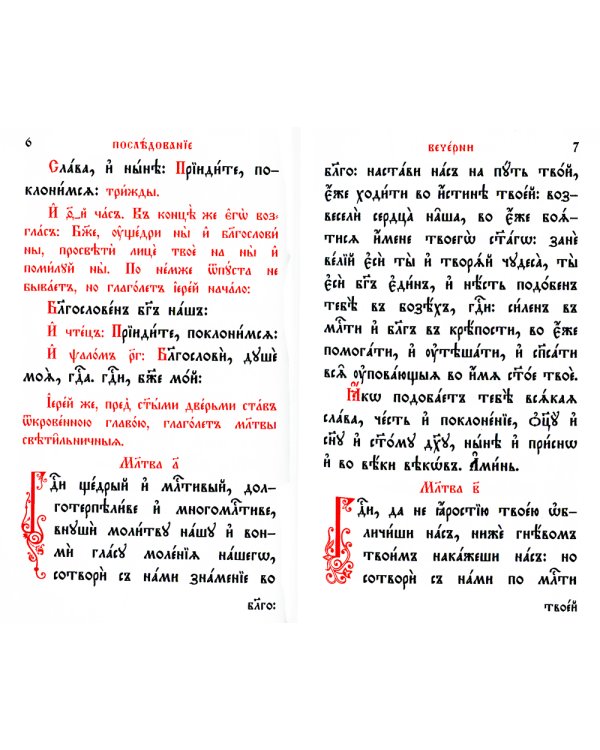 6
послѣ́дованїе
Сла́ва, и҆ ны́нѣ: Прїиди́те, по-
клони́мсѧ: три́жды.
И҆ а҃_й ча́съ. Въ концѣ́ же є҆гѡ̀ воз-
гла́съ: Бж҃е, оу҆ще́дри ны̀ и҆ бл҃гослови́
ны, просвѣтѝ лицѐ твоѐ на ны̀ и҆
поми́лꙋй ны̀. По не́мже ѿпꙋ́ста не
быва́етъ, но глаго́летъ і҆ере́й нача́ло:
Бл҃гослове́нъ бг҃ъ на́шъ:
И҆ чте́цъ: Прїиди́те, поклони́мсѧ:
И҆ ѱало́мъ р҃г: Бл҃гословѝ, дꙋшѐ
моѧ̀, гдⷭ҇а. гдⷭ҇и, бж҃е мо́й:
І҆ере́й же, пред̾ ст҃ы́ми две́рьми ста́въ
ѿкрове́нною главо́ю, глаго́летъ мл҃твы
свѣти́льничныѧ.
Мл҃тва а҃
Гдⷭ҇и ще́дрый и҆ млⷭ҇тивый, дол-
готерпѣли́ве и҆ многомлⷭ҇тиве,
внꙋшѝ моли́твꙋ на́шꙋ и҆ вон-
мѝ гла́сꙋ моле́нїѧ на́шегѡ,
сотворѝ съ на́ми зна́менїе во
бл҃го:
вече́рни
7
бл҃го: наста́ви на́съ на пꙋ́ть тво́й,
є҆́же ходи́ти во и҆́стинѣ твое́й: воз-
веселѝ сердца̀ на̑ша, во є҆́же боѧ́-
тисѧ и҆́мене твоегѡ̀ ст҃а́гѡ: занѐ
ве́лїй є҆сѝ ты̀ и҆ творѧ́й чꙋдеса̀, ты̀
є҆сѝ бг҃ъ є҆ди́нъ, и҆ нѣ́сть подо́бенъ
тебѣ̀ въ бозѣ́хъ, гдⷭ҇и: си́ленъ въ
млⷭ҇ти и҆ бл҃гъ въ крѣ́пости, во є҆́же
помога́ти, и҆ оу҆тѣша́ти, и҆ сп҃са́ти
всѧ̑ оу҆пова́ющыѧ во и҆́мѧ ст҃о́е твоѐ.
Ꙗ҆́кѡ подоба́етъ тебѣ̀ всѧ́каѧ
сла́ва, че́сть и҆ поклоне́нїе, ѻ҆ц҃ꙋ̀ и҆
сн҃ꙋ и҆ ст҃о́мꙋ дх҃ꙋ, ны́нѣ и҆ при́снѡ
и҆ во вѣ́ки вѣкѡ́въ. А҆ми́нь.
Мл҃тва в҃
Гдⷭ҇и, да не ꙗ҆́ростїю твое́ю ѡ҆б-
личи́ши на́съ, нижѐ гнѣ́вомъ
твои́мъ нака́жеши на́съ: но
сотворѝ съ на́ми по млⷭ҇ти
твое́й